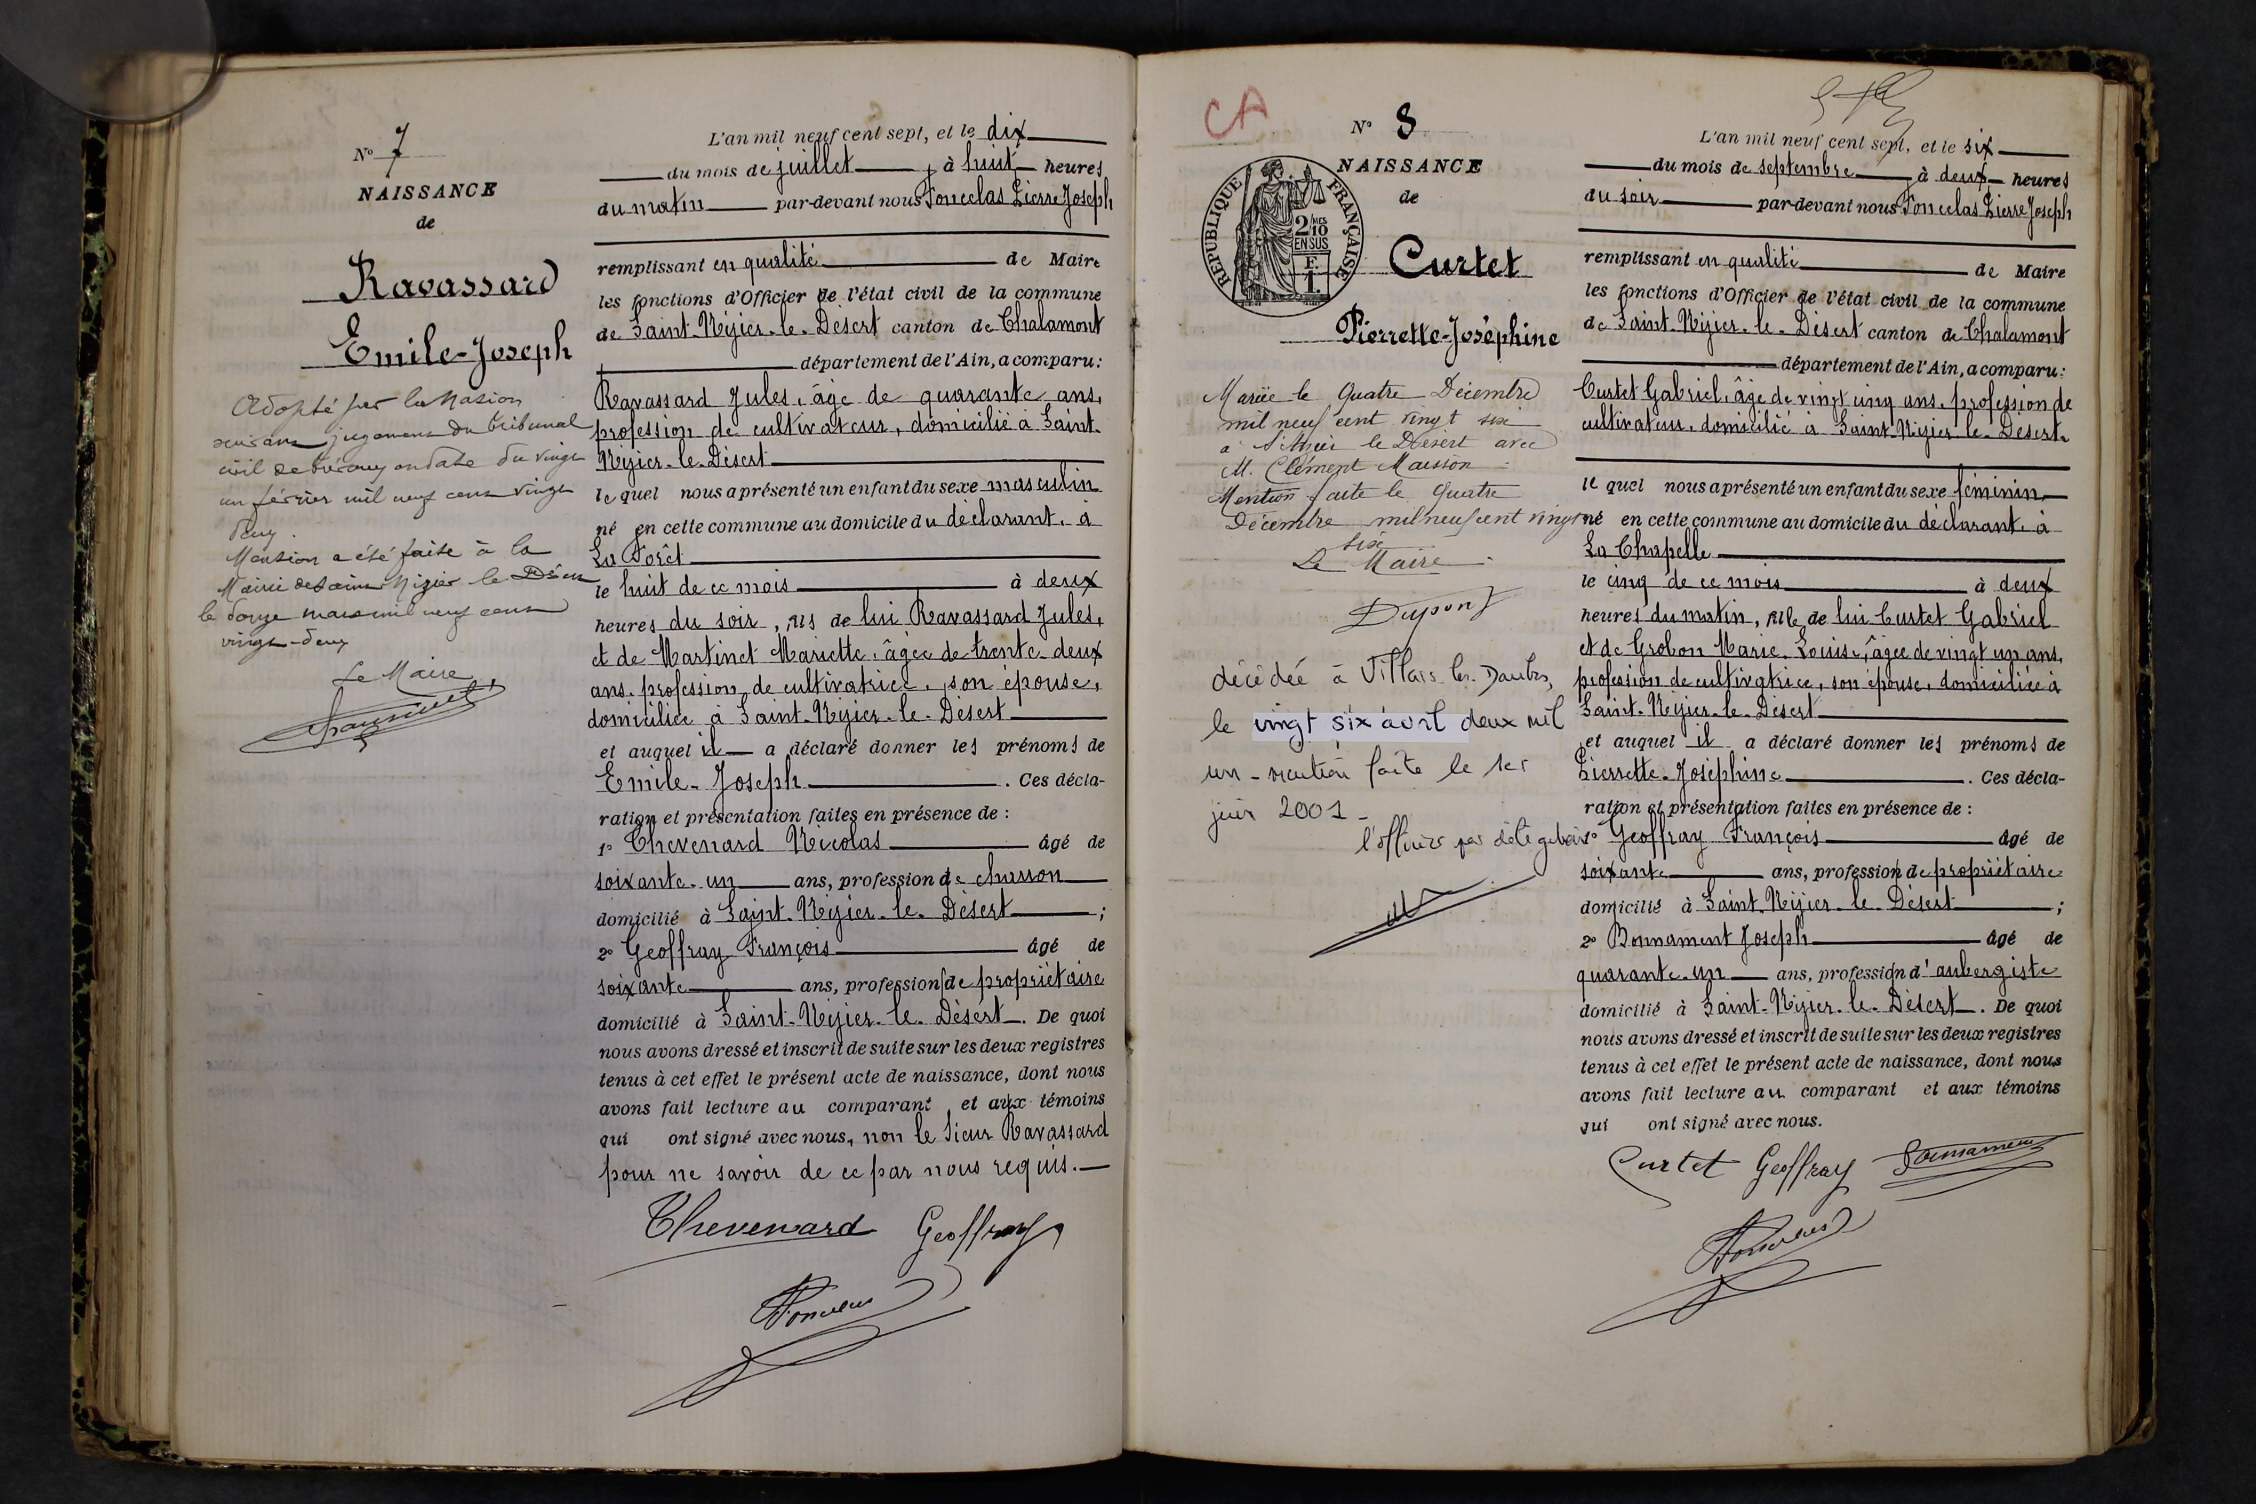 N° 7
NAISSANCE
de
Ravassard
Emile-Joseph
Adopté par la Nation
suivant jugement du tribunal
civil de Trévoux en date du vingt
un février mil neuf cent vingt
deux.
Mention a été faite à la
Mairie de Saint Nizier le Désert
le douze mars mil neuf cent
vingt-deux
Le Maire
L'an mil neuf cent sept, et le dix
du mois de juillet, à huit heures
du matin par-devant nous Fonclas Pierre Joseph
remplissant en qualité de Maire
les fonctions d'Officier de l'état civil de la commune
de Saint-Nizier-le-Désert canton de Chalamont
département de l'Ain, a comparu:
Ravassard Jules, âgé de quarante ans,
profession de cultivateur, domicilié à Saint-
Nizier-le-Désert
lequel nous a présenté un enfant du sexe masculin
né en cette commune au domicile du déclarant, à
La Forêt
le huit de ce mois à deux
heures du soir, fils de lui Ravassard Jules,
et de Martinet Mariette, âgée de trente-deux
ans, profession de cultivatrice, son épouse,
domiciliée à Saint-Nizier-le-Désert
et auquel il a déclaré donner les prénoms de
Emile-Joseph. Ces décla-
ration et présentation faites en présence de :
1° Thevenard Nicolas âgé de
soixante-un ans, profession de charron
domicilié à Saint-Nizier-le-Désert ;
2° Geoffray François âgé de
soixante ans, profession de propriétaire
domicilié à Saint-Nizier-le-Désert. De quoi
nous avons dressé et inscrit de suite sur les deux registres
tenus à cet effet le présent acte de naissance, dont nous
avons fait lecture au comparant et aux témoins
qui ont signé avec nous, non le sieur Ravassard
pour ne savoir de ce par nous requis.
Thevenard Geoffray
CA
N° 8
NAISSANCE
de
REPUBLIQUE FRANÇAISE
2/10 MES
EN SUS
F.
1.
Curtet
Pierrette-Joséphine
Mariée le Quatre Décembre
mil neuf cent vingt six
à St Nizier le Désert avec
M. Clément Maisson
Mention faite le Quatre
Décembre mil neuf cent vingt
six
Le Maire
Dupont
décédée à Villars-les-Dombes,
le vingt six avril deux mil
un - mention faite le 1er
juin 2001 -
l'officier par délégation
L'an mil neuf cent sept, et le six
du mois de septembre, à deux heures
du soir par-devant nous Fonclas Pierre Joseph
remplissant en qualité de Maire
les fonctions d'Officier de l'état civil de la commune
de Saint-Nizier-le-Désert canton de Chalamont
département de l'Ain, a comparu:
Curtet Gabriel, âgé de vingt cinq ans, profession de
cultivateur, domicilié à Saint-Nizier-le-Désert
lequel nous a présenté un enfant du sexe féminin
né en cette commune au domicile du déclarant, à
La Chapelle
le cinq de ce mois à deux
heures du matin, fille de lui Curtet Gabriel
et de Grobon Marie-Louise, âgée de vingt un ans,
profession de cultivatrice, son épouse, domiciliée à
Saint-Nizier-le-Désert
et auquel il a déclaré donner les prénoms de
Pierrette-Joséphine. Ces décla-
ration et présentation faites en présence de :
1° Geoffray François âgé de
soixante ans, profession de propriétaire
domicilié à Saint-Nizier-le-Désert ;
2° Bonnament Joseph âgé de
quarante-un ans, profession d'aubergiste
domicilié à Saint-Nizier-le-Désert. De quoi
nous avons dressé et inscrit de suite sur les deux registres
tenus à cet effet le présent acte de naissance, dont nous
avons fait lecture au comparant et aux témoins
qui ont signé avec nous.
Curtet Geoffray Bonnament